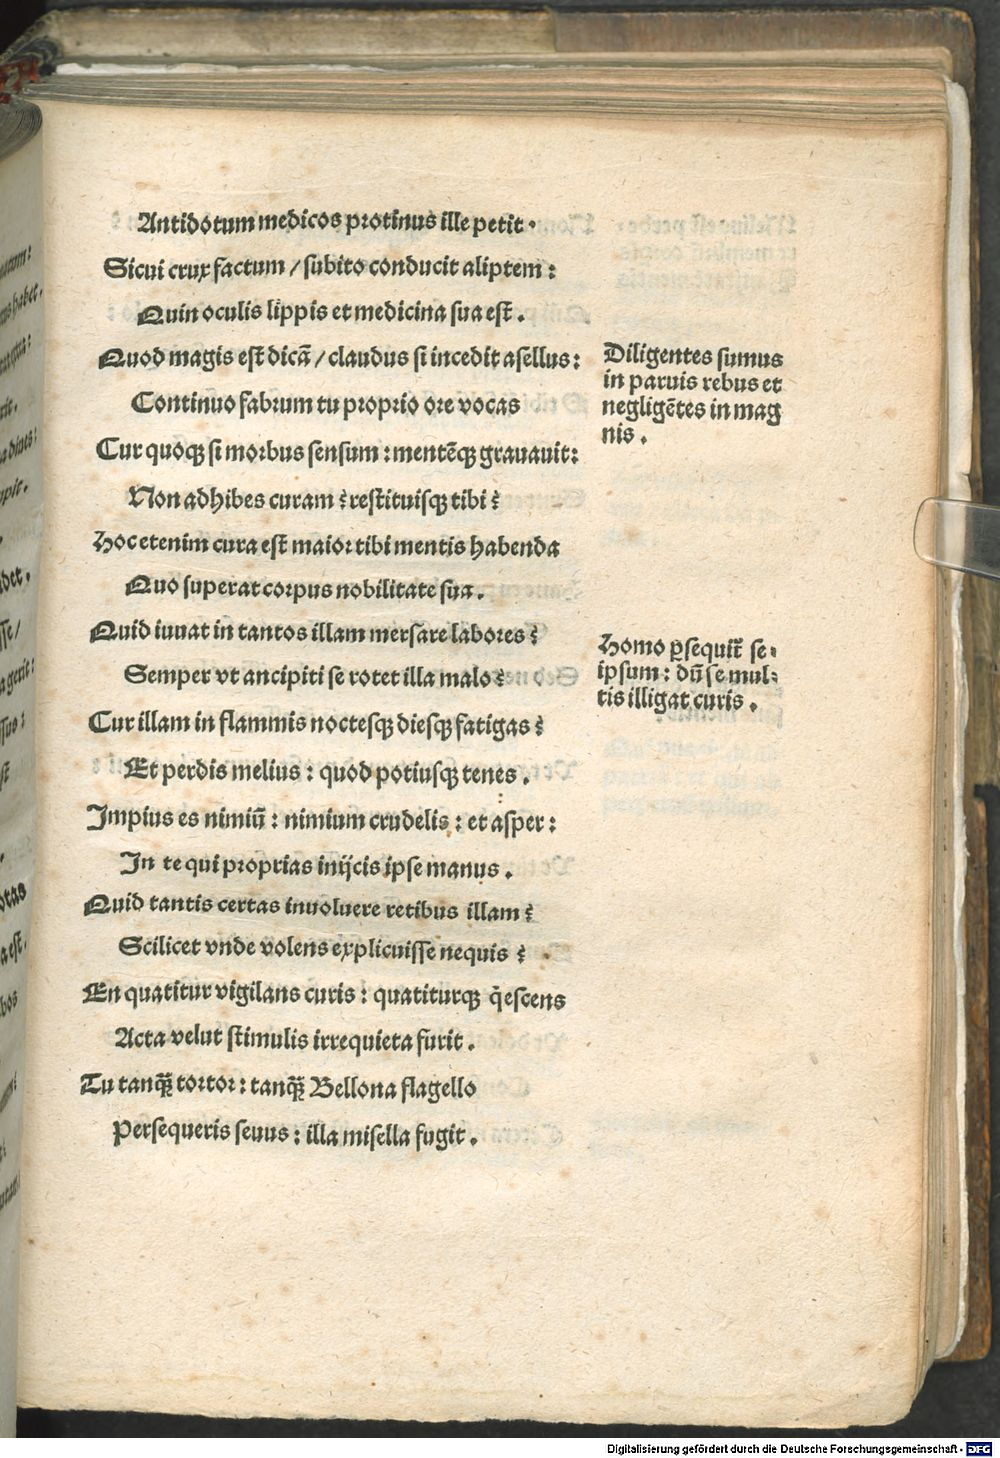 Antidotum medicos protinus ille petit.
Sicui crux factum / subito conducit aliptem:
Quin oculis lippis et medicina sua est.
Quod magis est dicã / claudus si incedit asellus:
Continuo fabrum tu proprio ore vocas
Cur quoqꝫ si morbus sensum: mentẽqꝫ grauauit:
Non adhibes curam? restituisqꝫ tibi?
Hoc etenim cura est maior tibi mentis habenda
Quo superat corpus nobilitate sua.
Quid iuuat in tantos illam mersare labores?
Semper vt ancipiti se rotet illa malo?
Cur illam in flammis noctesqꝫ diesqꝫ fatigas?
Et perdis melius: quod potiusqꝫ tenes.
Impius es nimiũ: nimium crudelis: et asper:
In te qui proprias inijcis ipse manus.
Quid tantis certas inuoluere retibus illam?
Scilicet vnde volens explicuisse nequis?
En quatitur vigilans curis: quatiturqꝫ q̃escens
Acta velut stimulis irrequieta furit.
Tu tanqꝫ̃ tortor: tanqꝫ̃ Bellona flagello
Persequeris seuus: illa misella fugit.
Diligentes sumus
in paruis rebus et
negligẽtes in mag
nis.
Homo ꝑsequit̃ se-
ipsum: dũ se mul-
tis illigat curis.
Digitalisierung gefördert durch die Deutsche Forschungsgemeinschaft - DFG